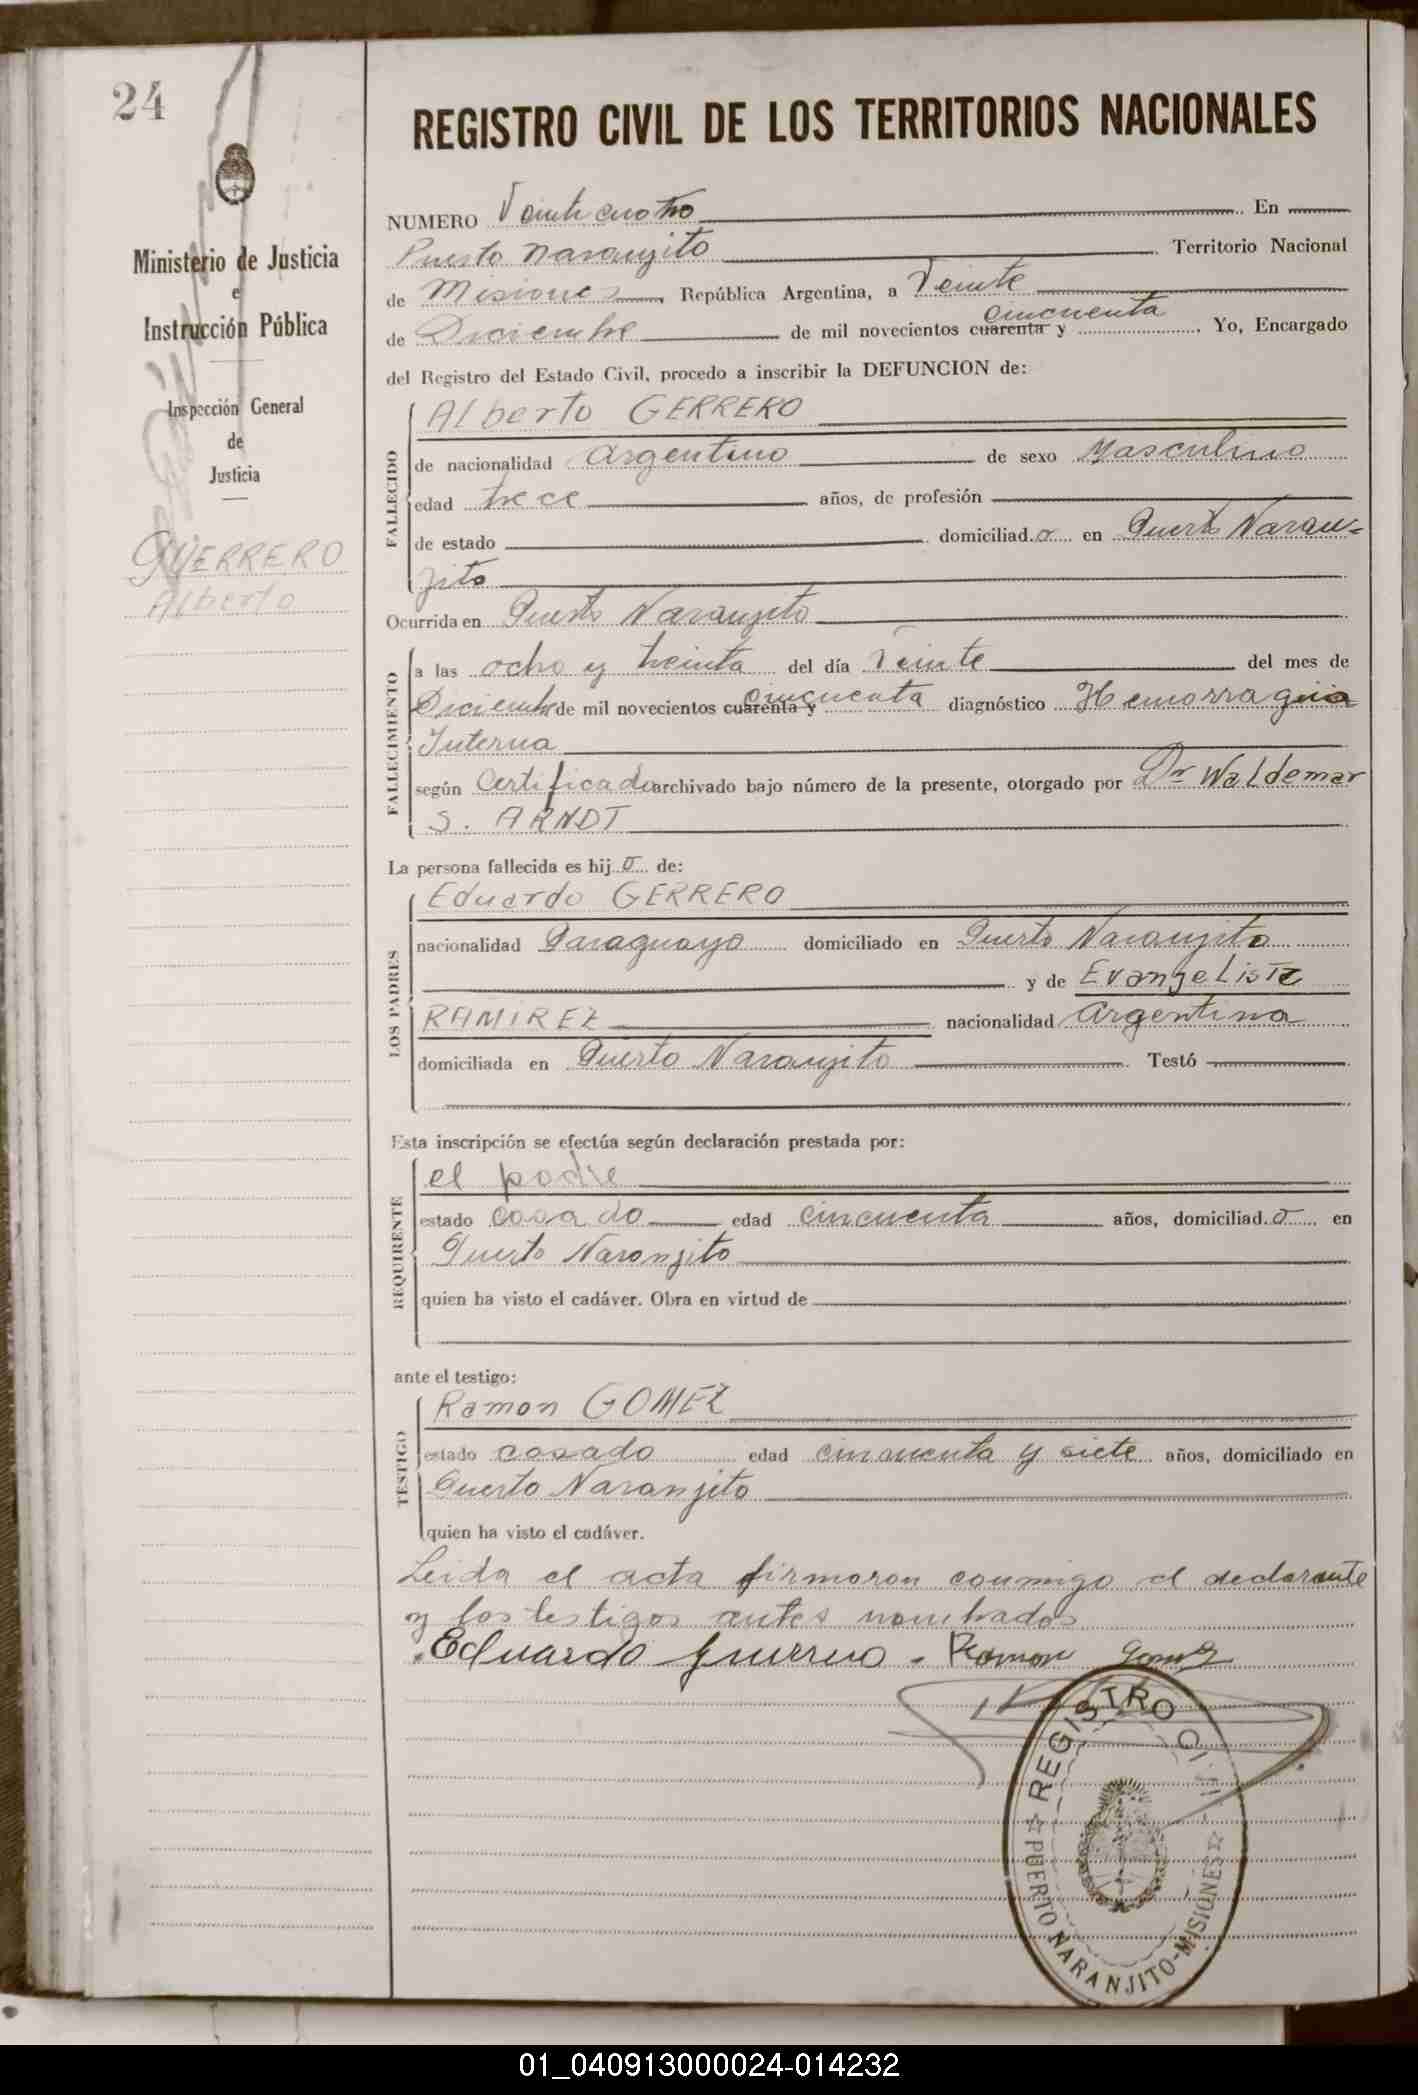 24
Ministerio de Justicia
e
Instrucción Pública
Inspección General
de
Justicia
GUERRERO
Alberto
REGISTRO CIVIL DE LOS TERRITORIOS NACIONALES
NUMERO Veinticuatro En
Puerto Naranjito Territorio Nacional
de Misiones, República Argentina, a Veinte
cincuenta
de Diciembre de mil novecientos cuarenta y Yo, Encargado
del Registro del Estado Civil, procedo a inscribir la DEFUNCION de:
FALLECIDO
Alberto GERRERO
de nacionalidad Argentino de sexo Masculino
edad trece años, de profesión
de estado domiciliad.o en Puerto Naran-
jito
Ocurrida en Puerto Naranjito
FALLECIMIENTO
a las ocho y treinta del día Veinte del mes de
cincuenta
Diciembre de mil novecientos cuarenta y diagnóstico Hemorragia
Interna
según Certificado archivado bajo número de la presente, otorgado por Dr Waldemar
S. ARNDT
La persona fallecida es hij o de:
LOS PADRES
Eduardo GERRERO
nacionalidad Paraguayo domiciliado en Puerto Naranjito
y de Evangelista
RAMIREZ nacionalidad Argentina
domiciliada en Puerto Naranjito. Testó
Esta inscripción se efectúa según declaración prestada por:
REQUIRENTE
el padre
estado casado edad cincuenta años, domiciliad.o en
Puerto Naranjito
quien ha visto el cadáver. Obra en virtud de
ante el testigo:
TESTIGO
Ramon GOMEZ
estado casado edad cincuenta y siete años, domiciliado en
Puerto Naranjito
quien ha visto el cadáver.
Leida el acta firmaron conmigo el declarante
y los testigos antes nombrados
Eduardo Guerrero. Ramon Gomez
REGISTRO CIVIL
PUERTO NARANJITO-MISIONES
01_040913000024-014232